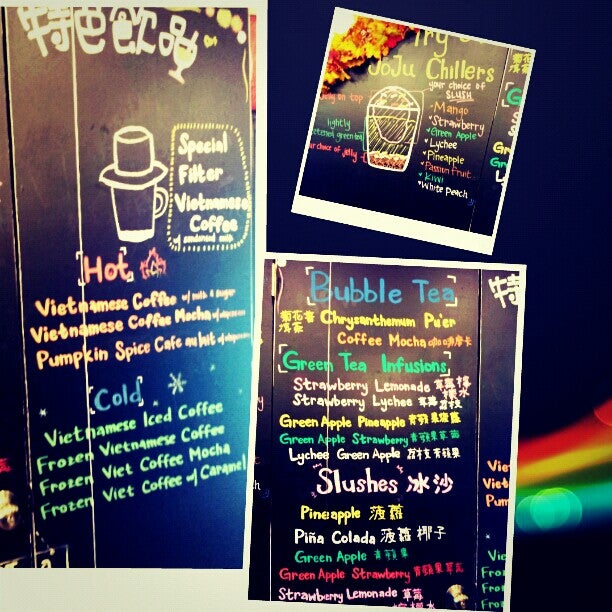 特色飲品
Special
Filter
Vietnamese
Coffee
w/ condensed milk
Hot
Vietnamese Coffee w/ milk & sugar
Vietnamese Coffee Mocha w/
Pumpkin Spice Cafe au lait w/
Cold
Vietnamese Iced Coffee
Frozen Vietnamese Coffee
Frozen Viet Coffee Mocha
Frozen Viet Coffee w/ Caramel
Try
JoJu Chillers
your choice of
SLUSH
Jelly on top
lightly
green tea
your choice of jelly
Mango
Strawberry
Green Apple
Lychee
Pineapple
Passion Fruit
Kiwi
White Peach
Bubble Tea
菊花普洱茶 Chrysanthemum Pu'er
Coffee Mocha 咖啡摩卡
Green Tea Infusions
Strawberry Lemonade 草莓檸檬水
Strawberry Lychee 草莓荔枝
Green Apple Pineapple 青蘋果菠蘿
Green Apple Strawberry 青蘋果草莓
Lychee Green Apple 荔枝青蘋果
Slushes 冰沙
Pineapple 菠蘿
Piña Colada 菠蘿椰子
Green Apple 青蘋果
Green Apple Strawberry 青蘋果草莓
Strawberry Lemonade 草莓
特
Vie
Viet
Pum
Vie
Fro
Fro